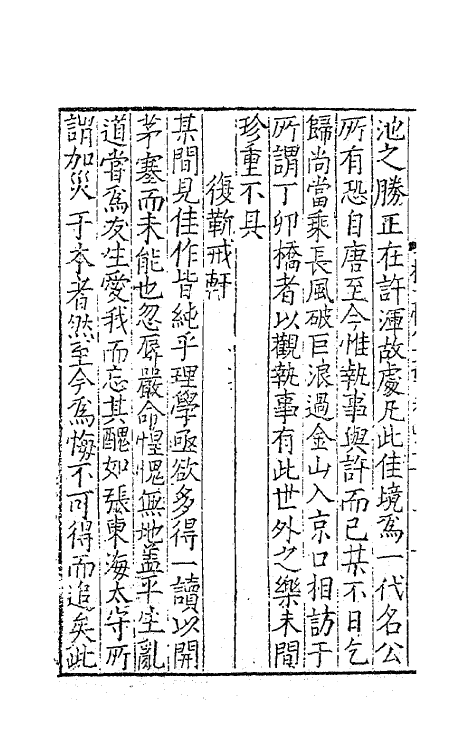 池之勝正在許渾故處凡此佳境爲一代名公
所有恐自唐至今惟執事與許而已某不日乞
歸尚當乘長風破巨浪過金山入京口相訪于
所謂丁卯橋者以觀執事有此世外之樂未間
珍重不具
復靳戒軒
某間見佳作皆純乎理學亟欲多得一讀以開
茅塞而未能也忽辱嚴命惶愧無地蓋平生亂
道嘗爲友生愛我而忘其醜如張東海太守所
謂加災于本者然至今爲悔不可得而追矣此